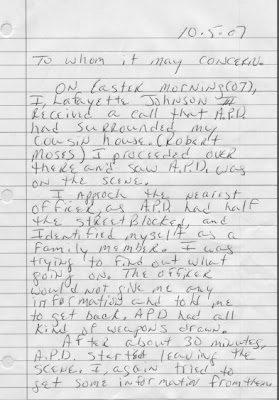 10.5.07
To whom it may concern.
ON Easter morning(07),
I, Lafayette Johnson III
Received a call that A.P.D
had surrounded my
cousin house. (Robert
Moses) I proceeded over
there and saw A.P.D. was
on the scene.
I approch the nearest
officer, as APD had half
the street Blocked, and
Identified myself as a
family member. I was
trying to find out what
going on. The officer
would not give me any
information and told me
to get back. APD had all
kind of weapons drawn.
After about 30 minutes,
A.P.D. started leaving the
scene. I, again tried to
get some information from them.